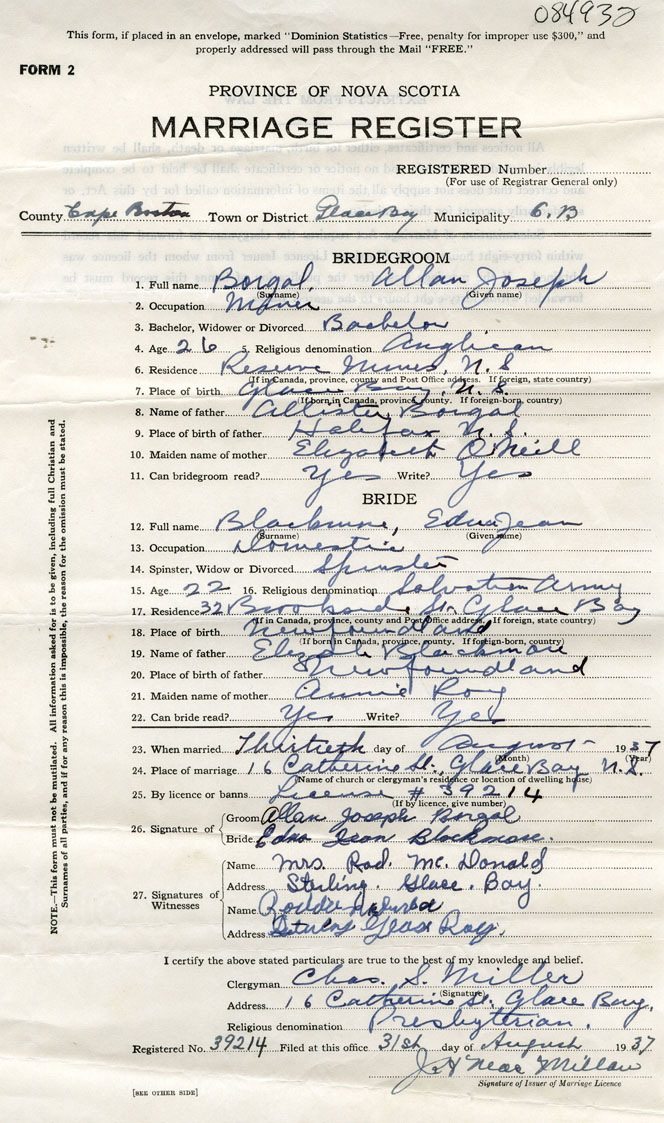 084932
This form, if placed in an envelope, marked "Dominion Statistics—Free, penalty for improper use $300," and
properly addressed will pass through the Mail "FREE."
FORM 2
PROVINCE OF NOVA SCOTIA
MARRIAGE REGISTER
REGISTERED Number
(For use of Registrar General only)
County Cape Breton Town or District Glace Bay Municipality C.B
BRIDEGROOM
1. Full name Borgal, Allan Joseph
(Surname) (Given name)
2. Occupation Miner
3. Bachelor, Widower or Divorced Bachelor
4. Age 26 5. Religious denomination Anglican
6. Residence Reserve Mines, N.S
(If in Canada, province, county and Post Office address. If foreign, state country)
7. Place of birth Glace Bay, N.S.
(If born in Canada, province, county. If foreign-born, country)
8. Name of father Allister Borgal
9. Place of birth of father Halifax N.S.
10. Maiden name of mother Elizabeth O'Neill
11. Can bridegroom read? Yes Write? Yes
BRIDE
12. Full name Blackmore, Edna Jean
(Surname) (Given name)
13. Occupation Domestic
14. Spinster, Widow or Divorced Spinster
15. Age 22 16. Religious denomination Salvation Army
17. Residence 32 Brookside St. Glace Bay
(If in Canada, province, county and Post Office address. If foreign, state country)
18. Place of birth Newfoundland
(If born in Canada, province, county. If foreign-born, country)
19. Name of father Blackmore
20. Place of birth of father Newfoundland
21. Maiden name of mother Annie
22. Can bride read? Yes Write? Yes
23. When married Thirtieth day of August 1937
(Month) (Year)
24. Place of marriage 16 Catherine St., Glace Bay N.S.
(Name of church or clergyman's residence or location of dwelling house)
25. By licence or banns License # 39214
(If by licence, give number)
26. Signature of
Groom Allan Joseph Borgal
Bride Edna Jean Blackmore.
27. Signatures of Witnesses
Name Mrs. Rod. Mc. Donald
Address Sterling. Glace. Bay.
Name
Address Glace Bay
I certify the above stated particulars are true to the best of my knowledge and belief.
Clergyman Chas. S. Miller
(Signature)
Address 16 Catherine St., Glace Bay,
Religious denomination Presbyterian.
Registered No. 39214 Filed at this office 31st day of August 1937
Signature of Issuer of Marriage Licence
[SEE OTHER SIDE]
NOTE.—This form must not be mutilated. All information asked for is to be given, including full Christian and
Surnames of all parties, and if for any reason this is impossible, the reason for the omission must be stated.